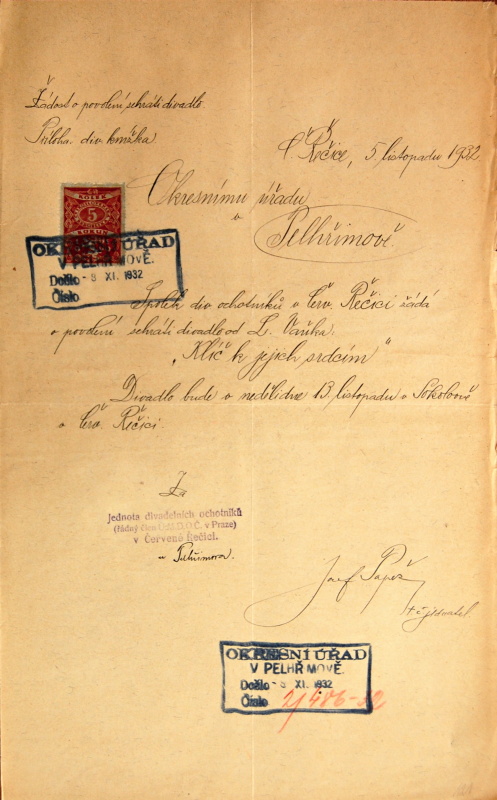 Žádost o povolení sehráti divadlo.
Příloha div. knížka.
Č. Řečice, 5. listopadu 1932
Okresnímu úřadu
v
Pelhřimově.
KOLEK
5
KORUN
OKRESNÍ ÚŘAD
V PELHŘIMOVĚ.
Došlo - 8 XI. 1932
Číslo
Spolek div. ochotníků v Červ. Řečici žádá
o povolení sehráti divadlo od L. Vaňka.
„Klíč k jejich srdcím"
Divadlo bude v neděli dne 13. listopadu v Sokolovně
v Červ. Řečici.
Za
Jednota divadelních ochotníků
(řádný člen Ú.M.D.O.Č. v Praze)
v Červené Řečici.
u Pelhřimova.
Josef Papež
t. č. jednatel.
OKRESNÍ ÚŘAD
V PELHŘIMOVĚ.
Došlo - 8 XI. 1932
Číslo